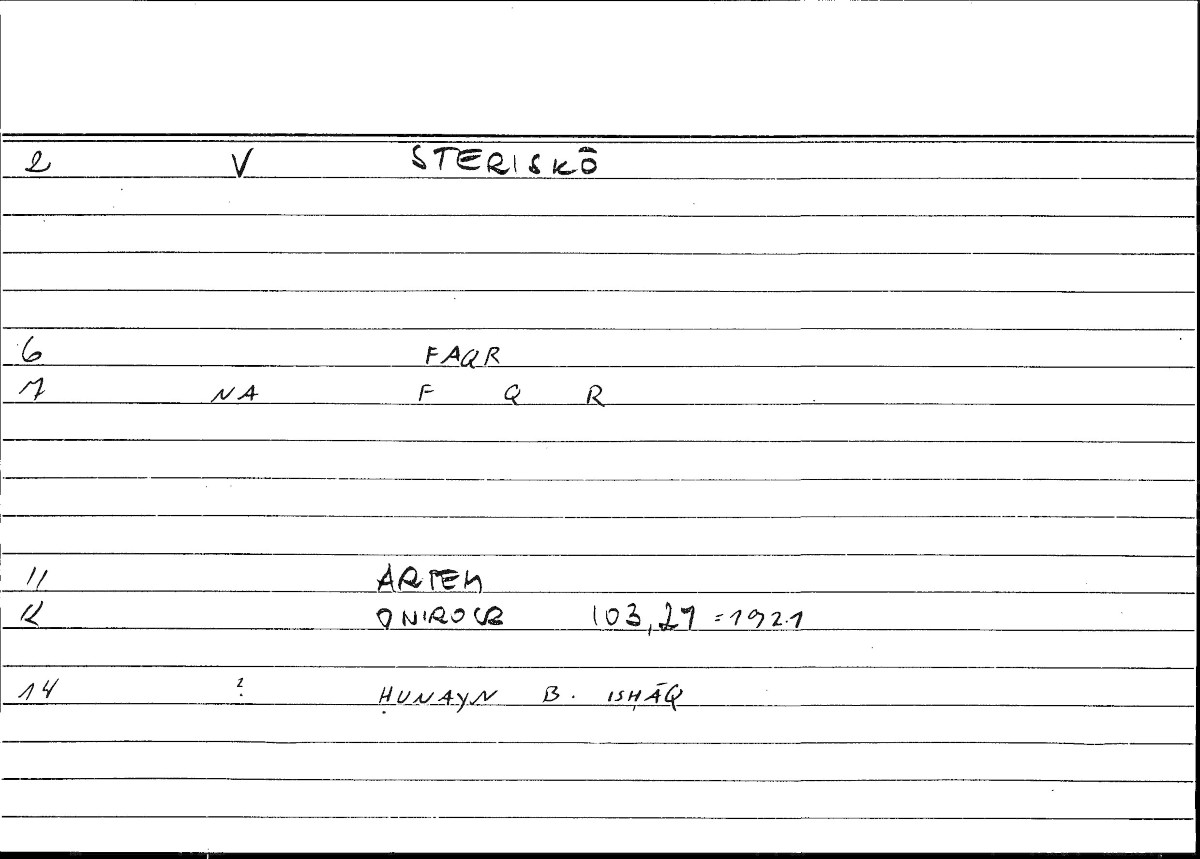 2 V STERISKŌ
6 FAQR
7 NA F Q R
11 ARTEM
12 ONIROCR 103,27 = 192.1
14 ? ḤUNAYN B. ISḤĀQ